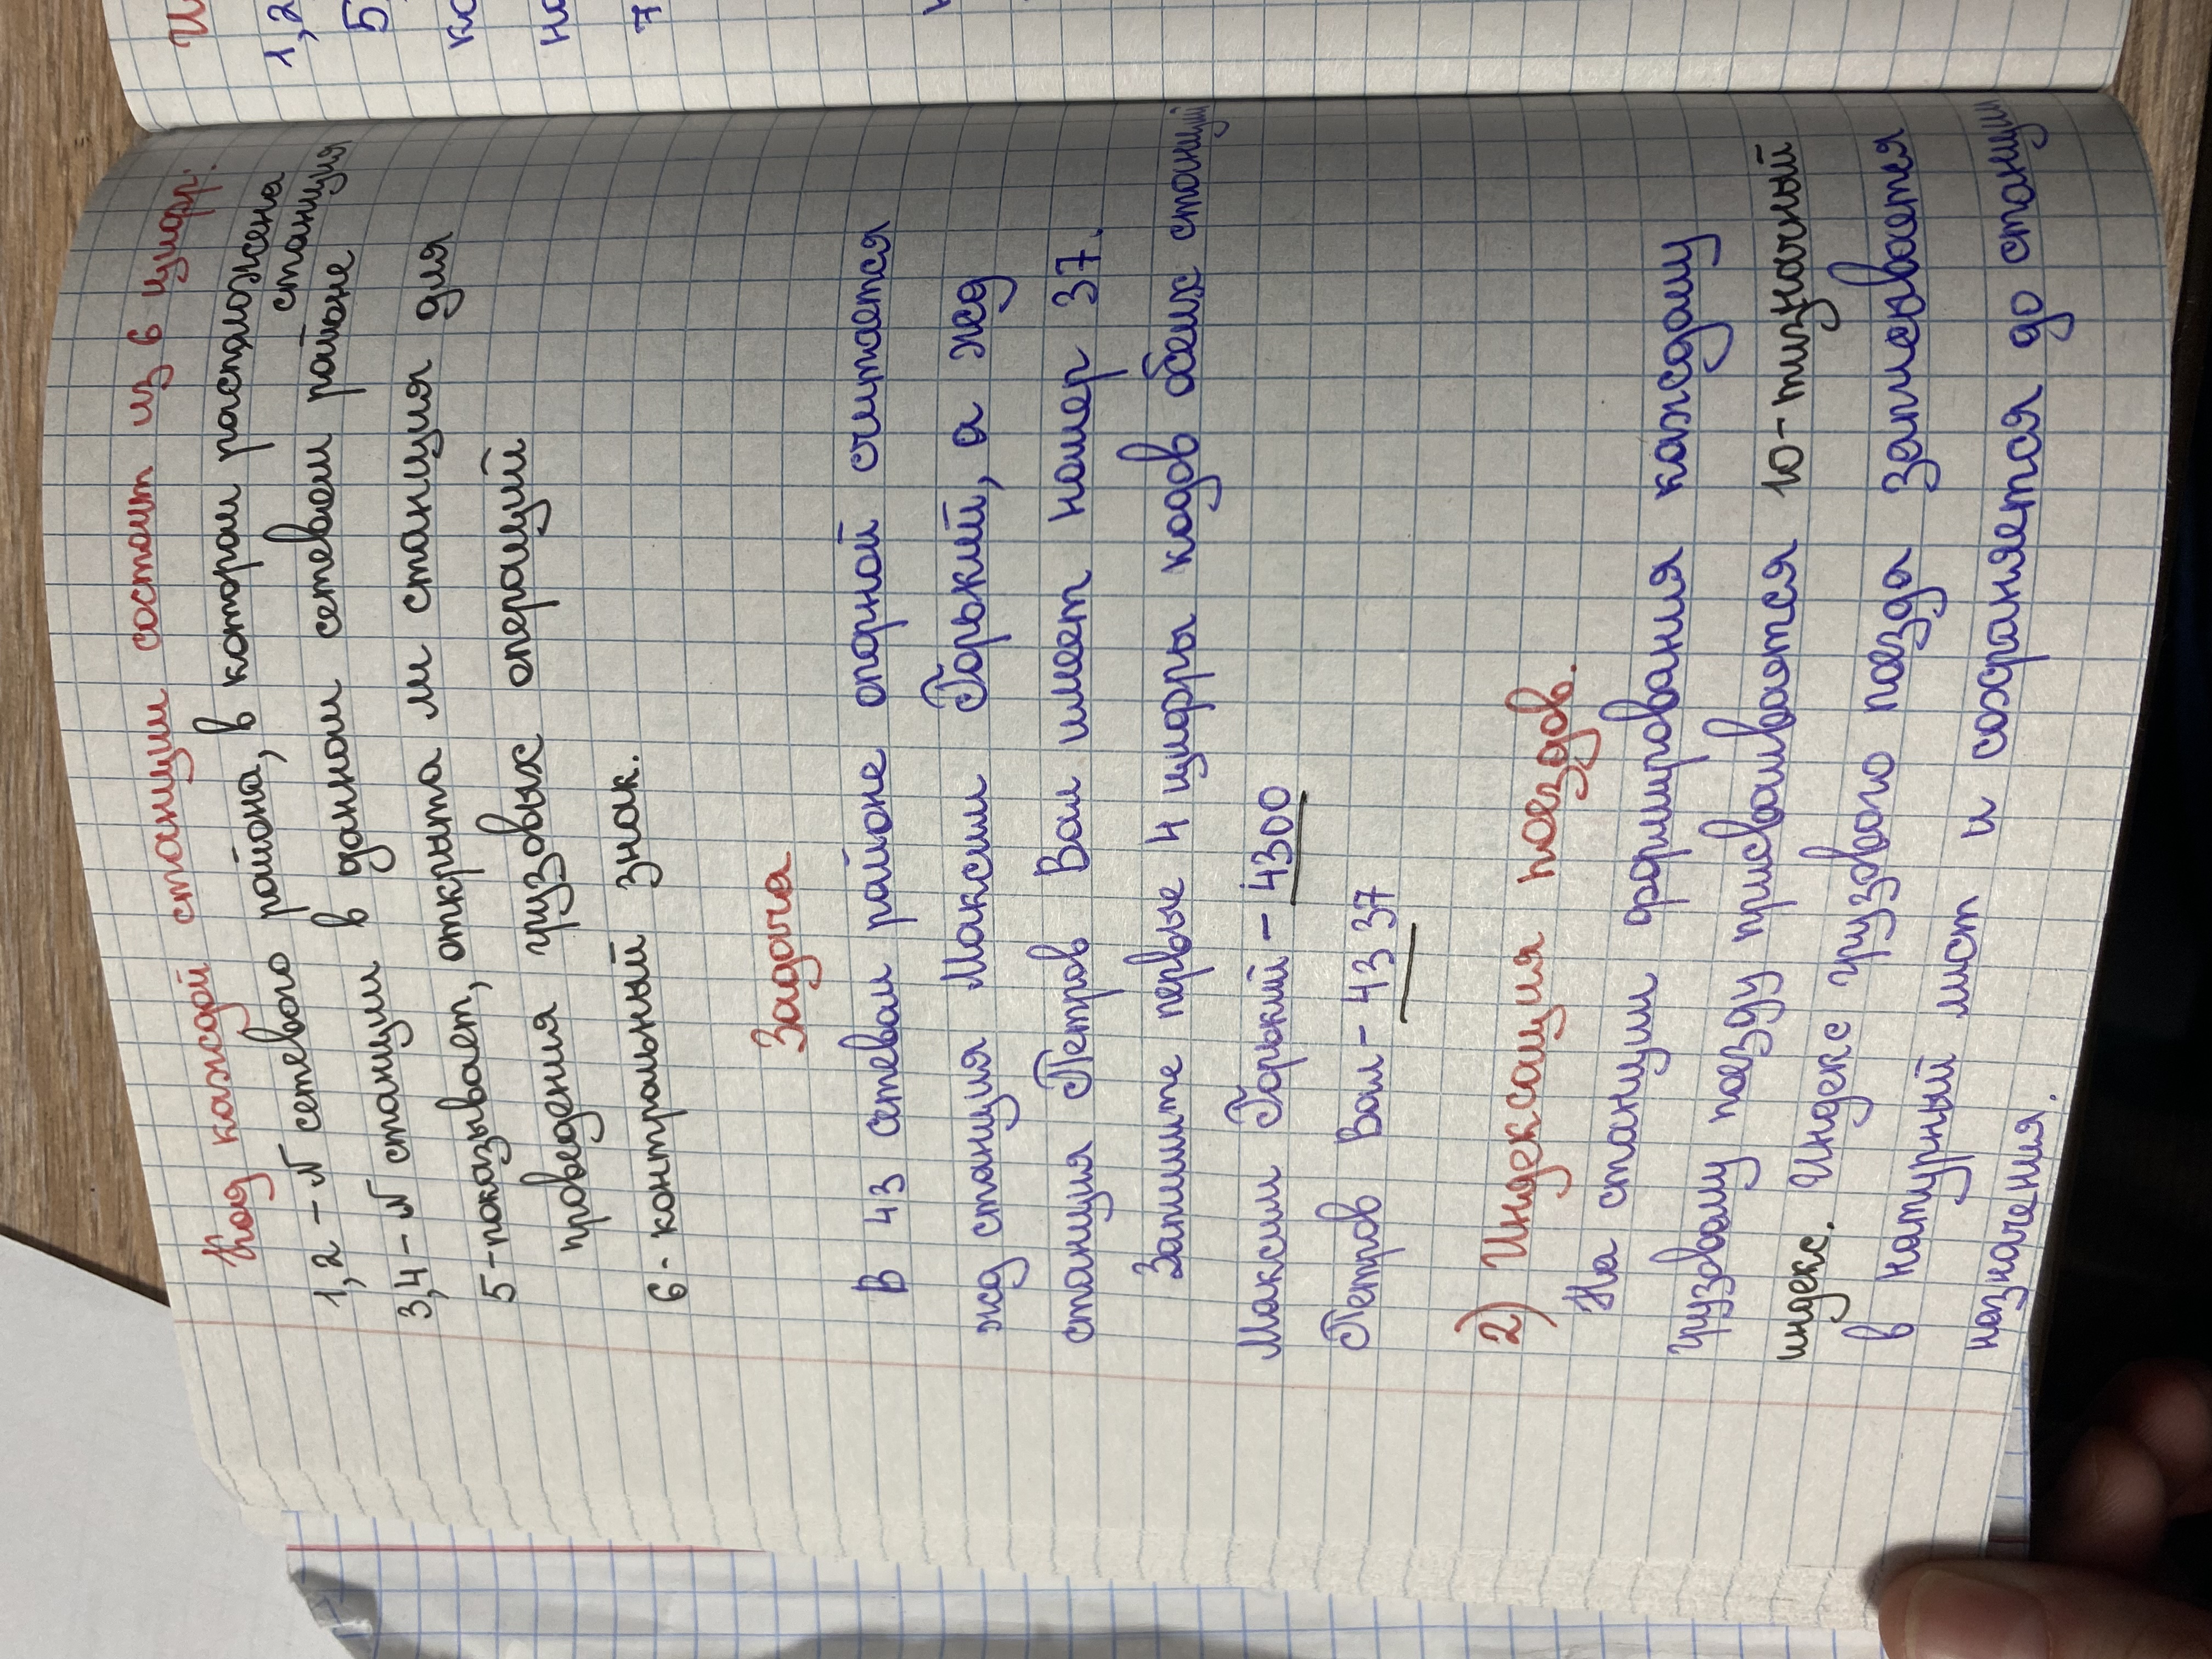 Код каждой станции состоит из 6 цифр.
1,2 - N сетевого района, в котором расположена
станция
3,4 - N станции в данном сетевом районе
5 - показывает, открыта ли станция для
проведения грузовых операций
6 - контрольный знак.
Задача
В 43 сетевом районе опорной считается
жд станция Максим Горький, а жд
станция Петров Вал имеет номер 37.
Запишите первые 4 цифры кодов обеих станций
Максим Горький - 4300
Петров Вал - 4337
2) Индексация поездов.
На станции формирования каждому
грузовому поезду присваивается 10-тизначный
индекс. Индекс грузового поезда записывается
в натурный лист и сохраняется до станции
назначения.
1,2
5
ко
но
7